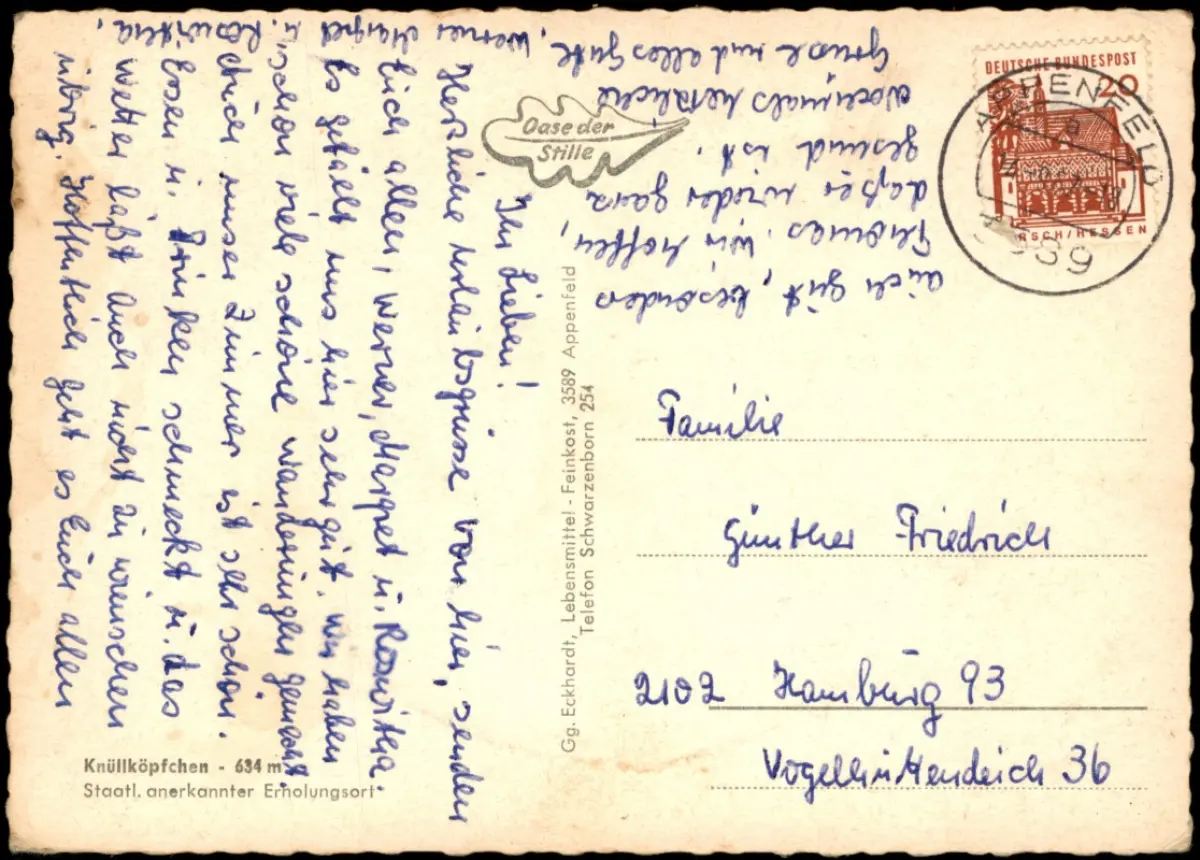 Ihr Lieben!
Herzliche Urlaubsgrüsse von hier, senden
Euch allen, Werner, Margret u. Roswitha.
Es gefällt uns hier sehr gut. Wir haben
schon viele schöne Wanderungen gemacht.
Auch unser Zimmer ist sehr schön.
Essen u. Trinken schmeckt u. das
Wetter läßt auch nicht zu wünschen
übrig. Hoffentlich geht es Euch allen
auch gut, besonders
Thomas. Wir hoffen,
daß er wieder ganz
gesund ist.
Nochmals herzliche
Grüße und alles Gute, Werner Margret u. Roswitha.
Oase der
Stille
DEUTSCHE BUNDESPOST
20
RSCH/HESSEN
APPENFELD
a
3589
Gg. Eckhardt, Lebensmittel - Feinkost, 3589 Appenfeld
Telefon Schwarzenborn 254
Familie
Günther Friedrich
2102 Hamburg 93
Vogelhüttendeich 36
Knüllköpfchen - 634 m
Staatl. anerkannter Erholungsort